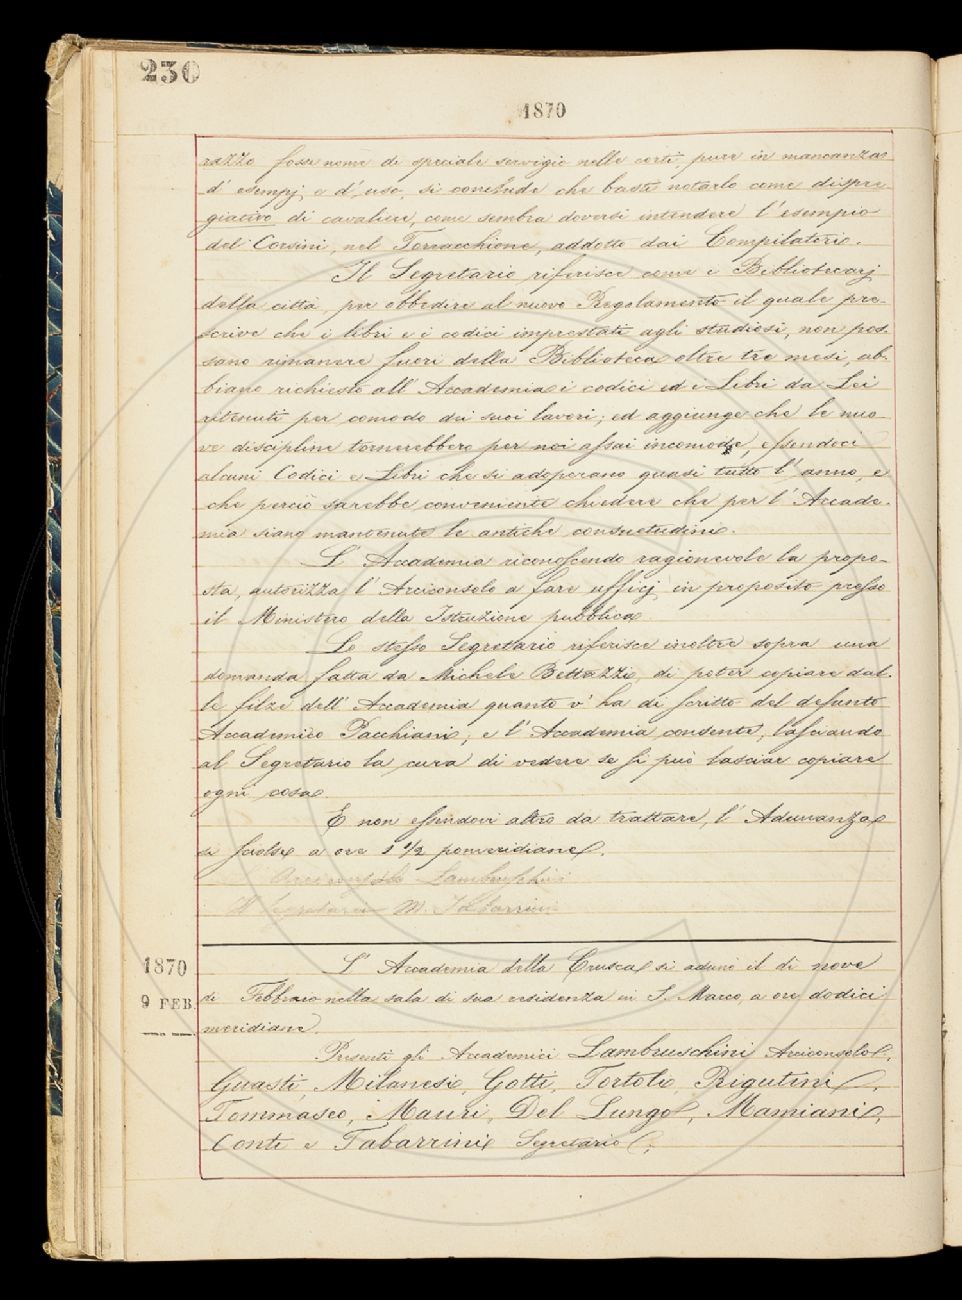 230
1870
razzo fosse nome di speciale servigio nelle corti, pure in mancanza
d' esempj e d' uso, si conclude che basti notarlo come dispre
giativo di cavaliere, come sembra doversi intendere l' esempio
del Corsini, nel Torracchione, addotto dai Compilatori.
Il Segretario riferisce come i Bibliotecarj
della città, per obbedire al nuovo Regolamento il quale pre-
scrive che i libri e i codici imprestati agli studiosi, non pos
sano rimanere fuori della Biblioteca oltre tre mesi, ab-
biano richiesto all' Accademia i codici ed i Libri da Lei
ritenuti per comodo dei suoi lavori; ed aggiunge che le nuo
ve discipline tornerebbero per noi assai incomode, essendoci
alcuni Codici e Libri che si adoperano quasi tutto l' anno, e
che perciò sarebbe conveniente chiedere che per l' Accade-
mia siano mantenute le antiche consuetudini.
L' Accademia riconoscendo ragionevole la propo-
sta, autorizza l' Arciconsolo a fare ufficj in proposito presso
il Ministero della Istruzione pubblica.
Lo stesso Segretario riferisce inoltre sopra una
domanda fatta da Michele Bettazzi, di poter copiare dal-
le filze dell' Accademia quanto v' ha di scritto del defunto
Accademico Pacchiani; e l' Accademia consente, lasciando
al Segretario la cura di vedere se si può lasciar copiare
ogni cosa
E non essendovi altro da trattare, l' Adunanza
si sciolse a ore 1 1/2 pomeridiane.
Arciconsolo Lambruschini
Il Segretario M. Tabarrini
1870
9 FEB.
L' Accademia della Crusca si adunò il dì nove
di Febbraio nella sala di sua residenza in S. Marco, a ore dodici
meridiane.
Presenti gli Accademici Lambruschini Arciconsolo,
Guasti, Milanesi, Gotti, Tortoli, Rigutini,
Tommaseo, Mauri, Del Lungo, Mamiani,
Conti e Tabarrini Segretario.